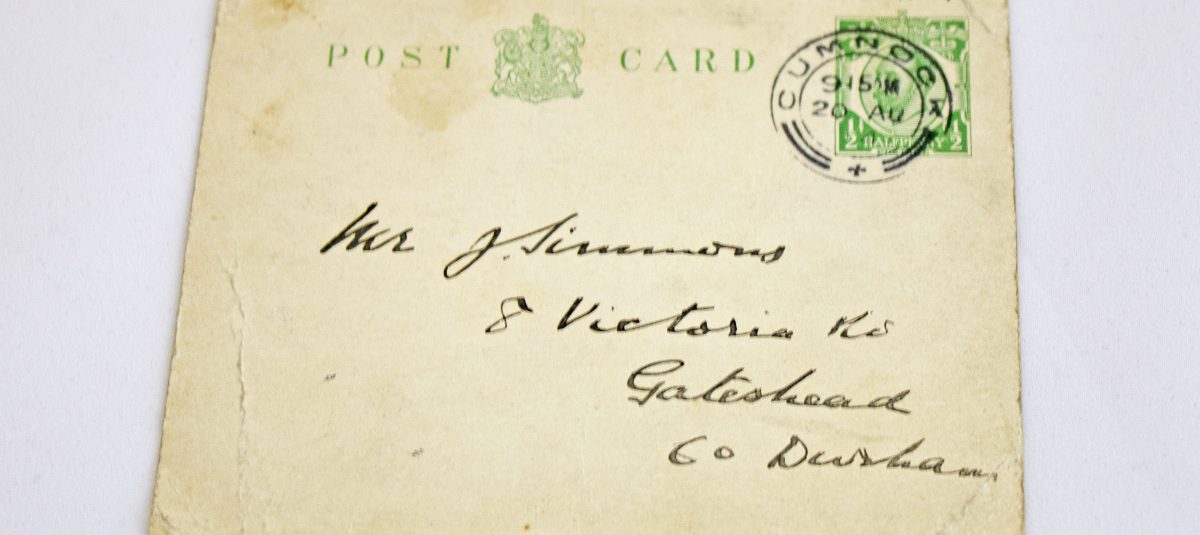 POST CARD
CUMNOCK
9·15 AM
20 AU
½ HALFPENNY ½
Mr J. Simmons
8 Victoria Rd
Gateshead
Co Durham